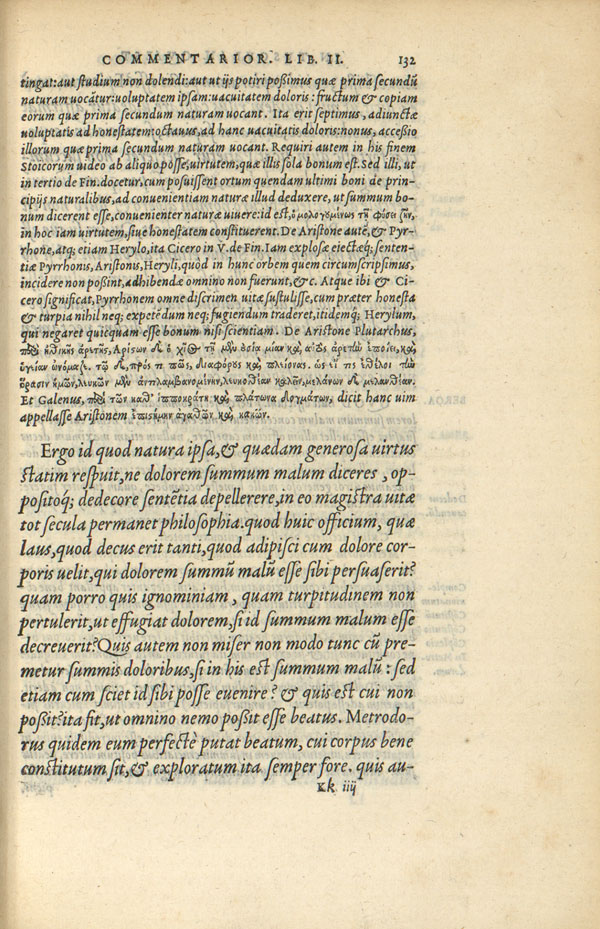 COMMENTARIOR. LIB. II. 132
tingat: aut studium non dolendi: aut ut ijs potiri poßimus quæ prima secundū
naturam uocātur: uoluptatem ipsam: uacuitatem doloris: fructum & copiam
eorum quæ prima secundum naturam uocant. Ita erit septimus, adiunctæ
uoluptatis ad honestatem: octauus, ad hanc uacuitatis doloris: nonus, accessio
illorum quæ prima secundum naturam uocant. Requiri autem in his finem
Stoicorum uideo ab aliquo posse, uirtutem, quæ illis sola bonum est. Sed illi, ut
in tertio de Fin. docetur, cum posuissent ortum quendam ultimi boni de prin-
cipijs naturalibus, ad conuenientiam naturæ illud deduxere, ut summum bo-
num dicerent esse, conuenienter naturæ uiuere: id est, ὁμολογουμένως τῇ φύσει ζῆν,
in hoc iam uirtutem, siue honestatem constituerent. De Aristone autē, & Pyr-
rhone, atq; etiam Herylo, ita Cicero in V. de Fin. Iam explosæ eiectæq; senten-
tiæ Pyrrhonis, Aristonis, Heryli, quòd in hunc orbem quem circumscripsimus,
incidere non poßint, adhibendæ omnino non fuerunt, &c. Atque ibi & Ci-
cero significat, Pyrrhonem omne discrimen uitæ sustulisse, cum præter honesta
& turpia nihil neq; expetedum neq; fugiendum traderet, itidemq; Herylum,
qui negaret quicquam esse bonum nisi scientiam. De Aristone Plutarchus,
ἀρετῆς, Ἀρίσων
ὑγίειαν ὠνόμαζε. διαφόρους
ὅρασιν
Et Galenus, dicit hanc uim
appellasse Aristonem ἐπισήμην ἀγαθῶν καὶ κακῶν.
Ergo id quod natura ipsa, & quædam generosa uirtus
statim respuit, ne dolorem summum malum diceres, op-
positoq́; dedecore sentētia depellerere, in eo magistra uitæ
tot secula permanet philosophia. quod huic officium, quæ
laus, quod decus erit tanti, quod adipisci cum dolore cor-
poris uelit, qui dolorem summū malū esse sibi persuaserit?
quam porro quis ignominiam, quam turpitudinem non
pertulerit, ut effugiat dolorem, si id summum malum esse
decreuerit? Quis autem non miser non modo tunc cū pre-
metur summis doloribus, si in his est summum malū: sed
etiam cum sciet id sibi posse euenire? & quis est cui non
poßit? ita fit, ut omnino nemo poßit esse beatus. Metrodo-
rus quidem eum perfectè putat beatum, cui corpus bene
constitutum sit, & exploratum ita semper fore. quis au-
Kk iiij